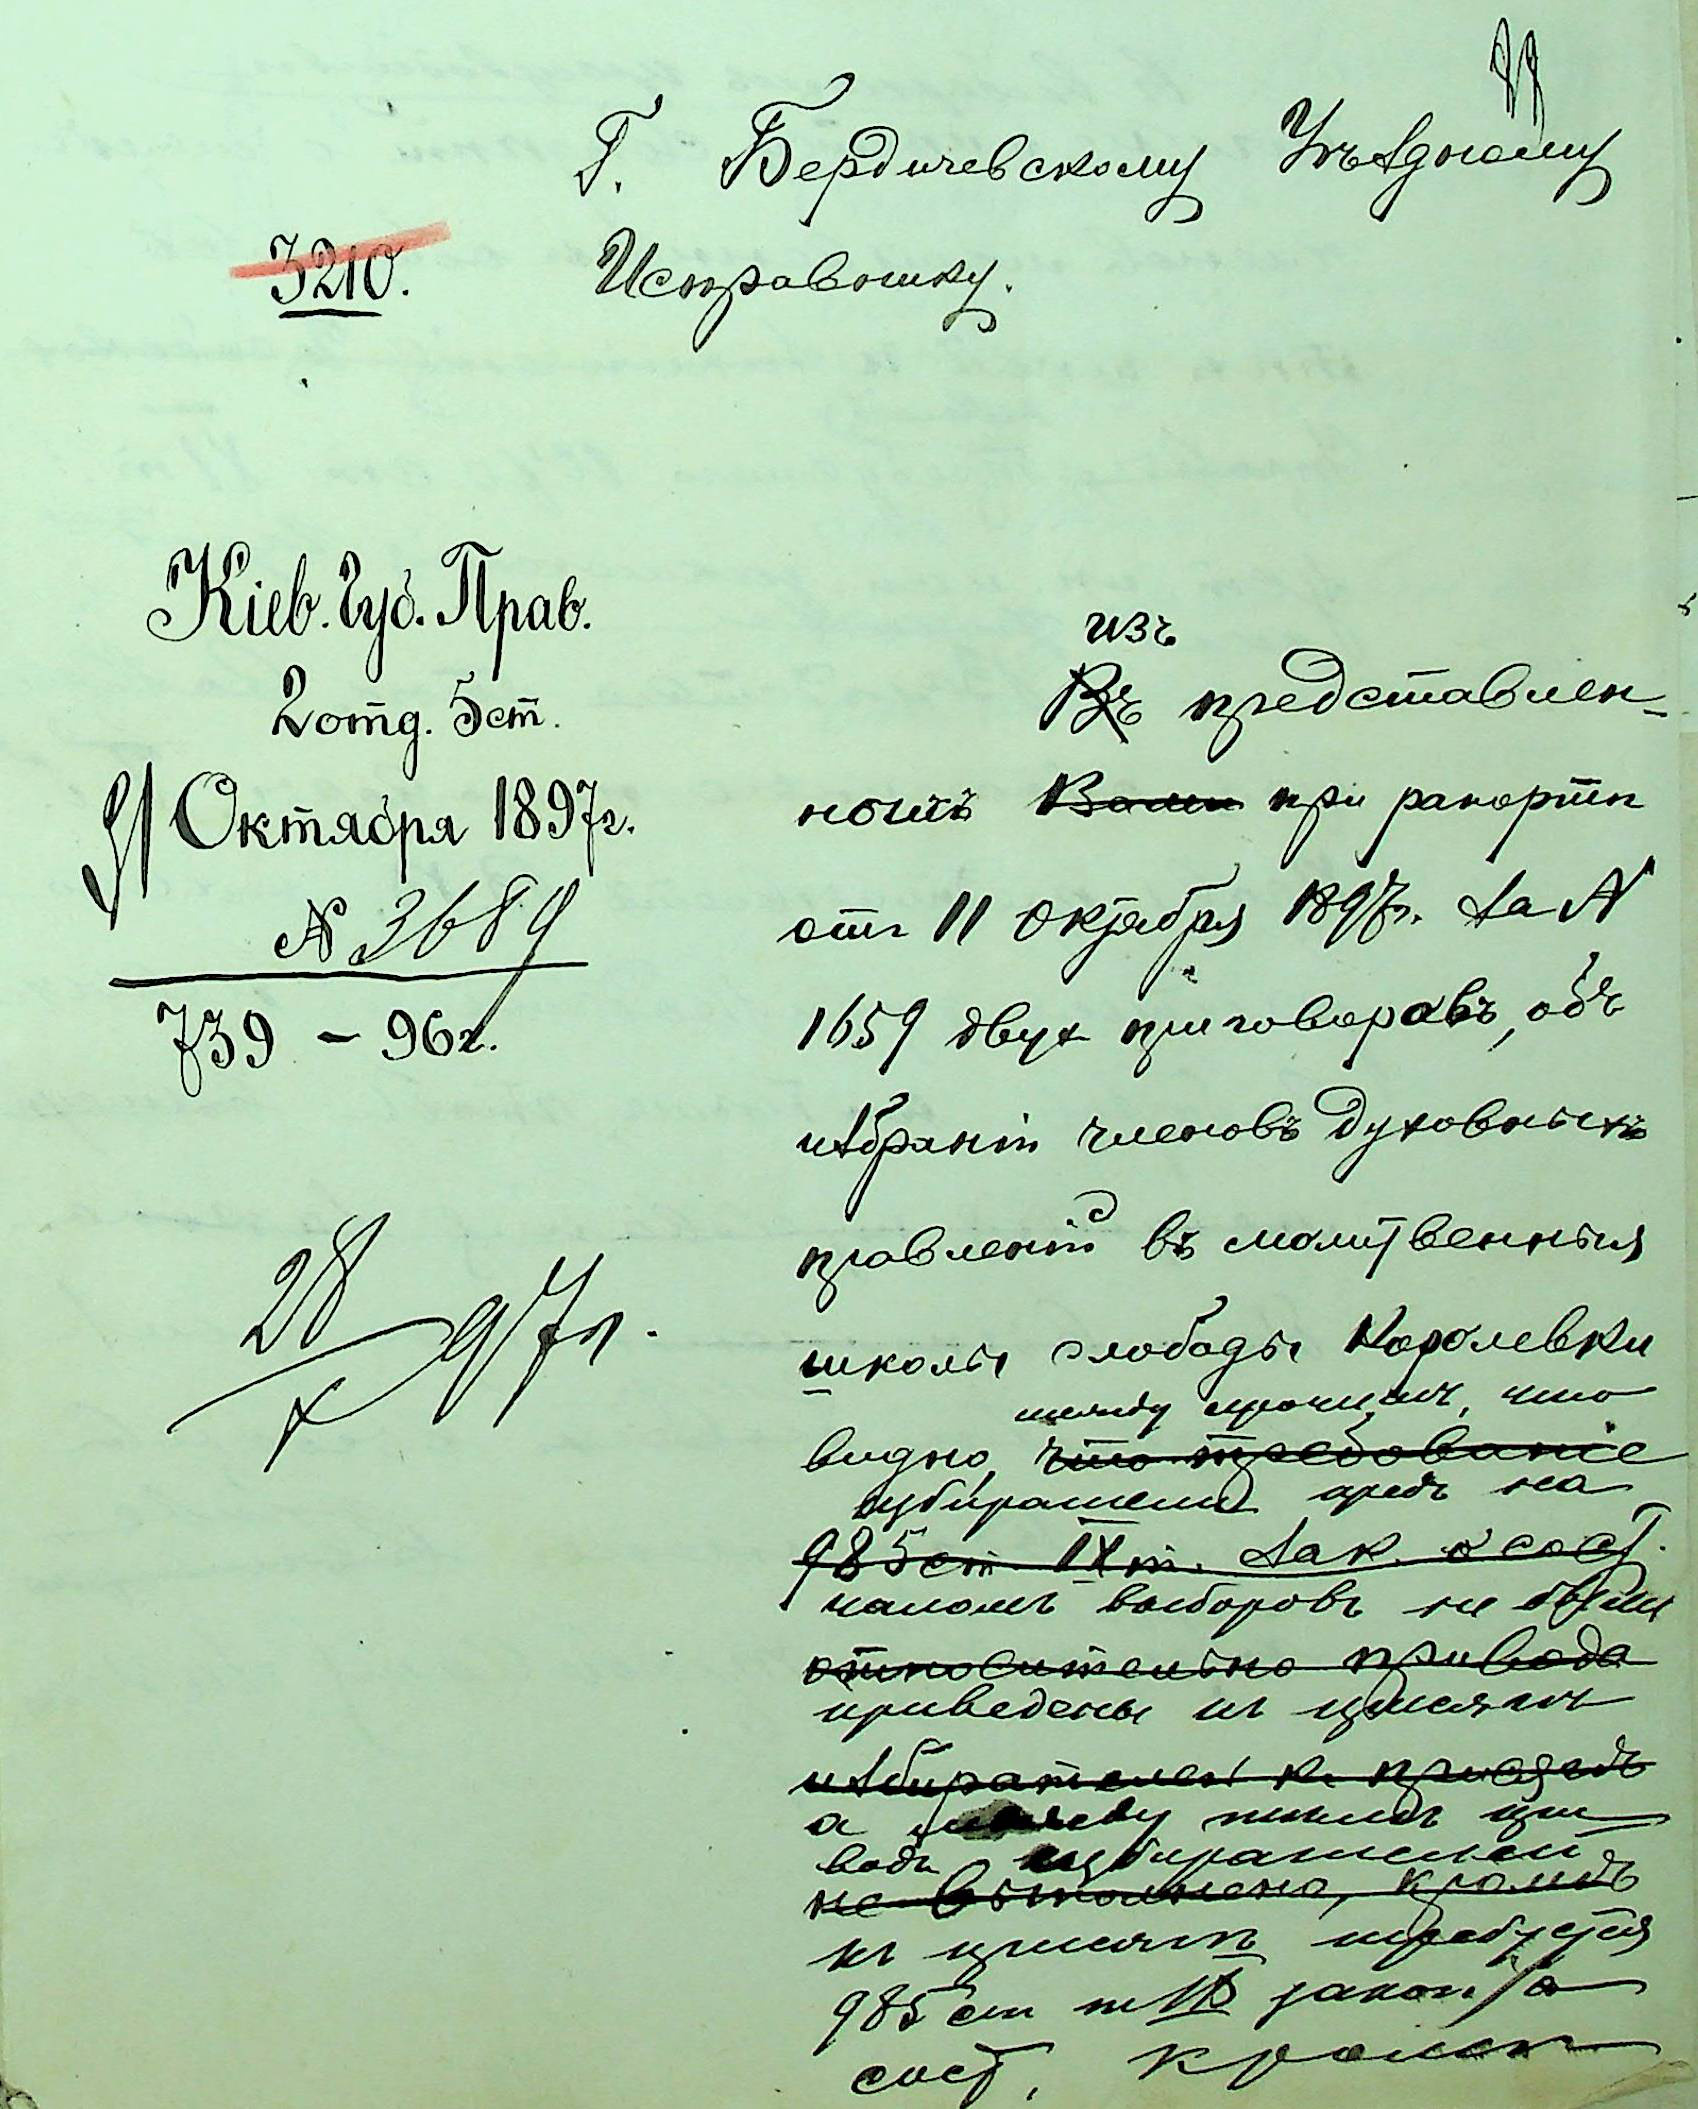 Г. Бердичевскому Уѣздному
Исправнику.
3210.
Кіев. Губ. Прав.
2 отд. 5 ст.
31 Октября 1897 г.
№ 3689
739 – 96 г.
28/X 97 г.
изъ
Въ представлен-
ныхъ Вами при рапортѣ
отъ 11 Октября 1897 г. за №
1659 двухъ приговоровъ, объ
избраніи членовъ Духовныхъ
правленій въ молитвенныя
школы слободы Королевки
между прочимъ, что
видно, что требованіе
избиратели предъ на
985 ст. IX т. Зак. о сост.
чаломъ выборовъ не были
относительно привода
приведены къ присягѣ
избирателей къ присягѣ
а между тѣмъ при
водъ избирателей
не выполнено, кромѣ
къ присягѣ требуется
985 ст т IX закон. о
сост, кромѣ